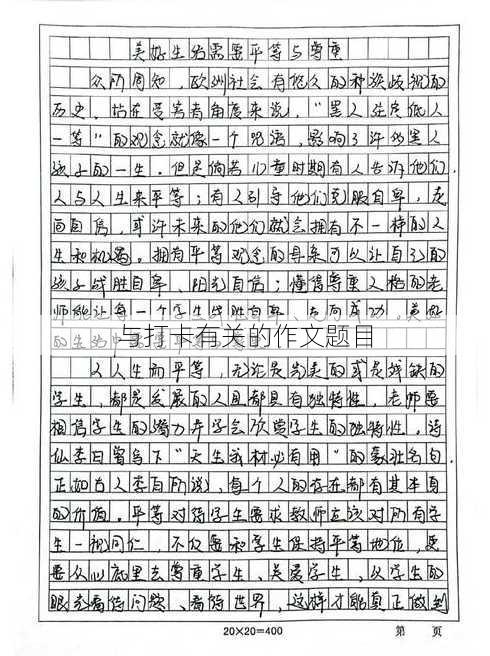 美好生活需要平等与尊重
众所周知，欧洲社会有悠久的种族歧视的
历史，站在受害者角度来说，“黑人生来低人
一等”的观念就像一个咒语，影响了许多黑人
孩子的一生。但是倘若儿童时期有人告诉他们，
人与人生来平等；有人引导他们克服自卑，走
向自信，或许未来的他们就会拥有不一样的人
生和机遇。拥有平等观念的母亲可以让自己的
孩子战胜自卑、阳光自信；懂得尊重人格的老
师能让每一个学生战胜自卑、走向成功，美好
的生活中需要平等
与打卡有关的作文题目
人人生而平等，无论是完美的或是残缺的
学生，都是发展的人且都具有独特性，老师要
相信学生的潜力并学会欣赏学生的独特性，诗
仙李白曾写下“天生我材必有用”的豪壮名句，
正如古人李白所说，每个人的存在都有其本身
的价值。平等对待学生要求教师应该对所有学
生一视同仁，不仅要和学生保持平等地位，更
要从心底里去尊重学生、关爱学生，以学生的
眼光看待问题、看待世界，这样才能真正做到
20×20=400 第 页